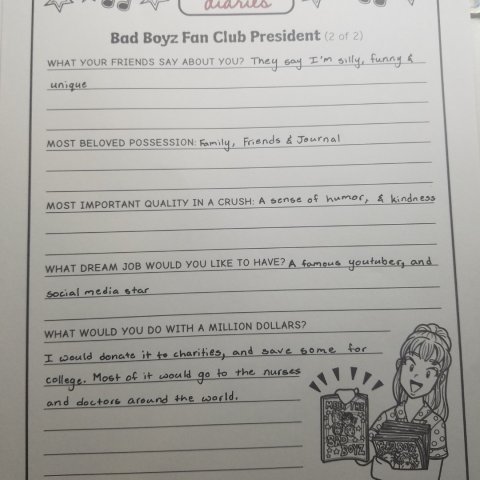 diaries
Bad Boyz Fan Club President (2 of 2)
WHAT YOUR FRIENDS SAY ABOUT YOU? They say I'm silly, funny &
unique
MOST BELOVED POSSESSION: Family, Friends & Journal
MOST IMPORTANT QUALITY IN A CRUSH: A sense of humor, & kindness
WHAT DREAM JOB WOULD YOU LIKE TO HAVE? A famous youtuber, and
social media star
WHAT WOULD YOU DO WITH A MILLION DOLLARS?
I would donate it to charities, and save some for
college. Most of it would go to the nurses
and doctors around the world.
MEET THE
BAD
BOYZ